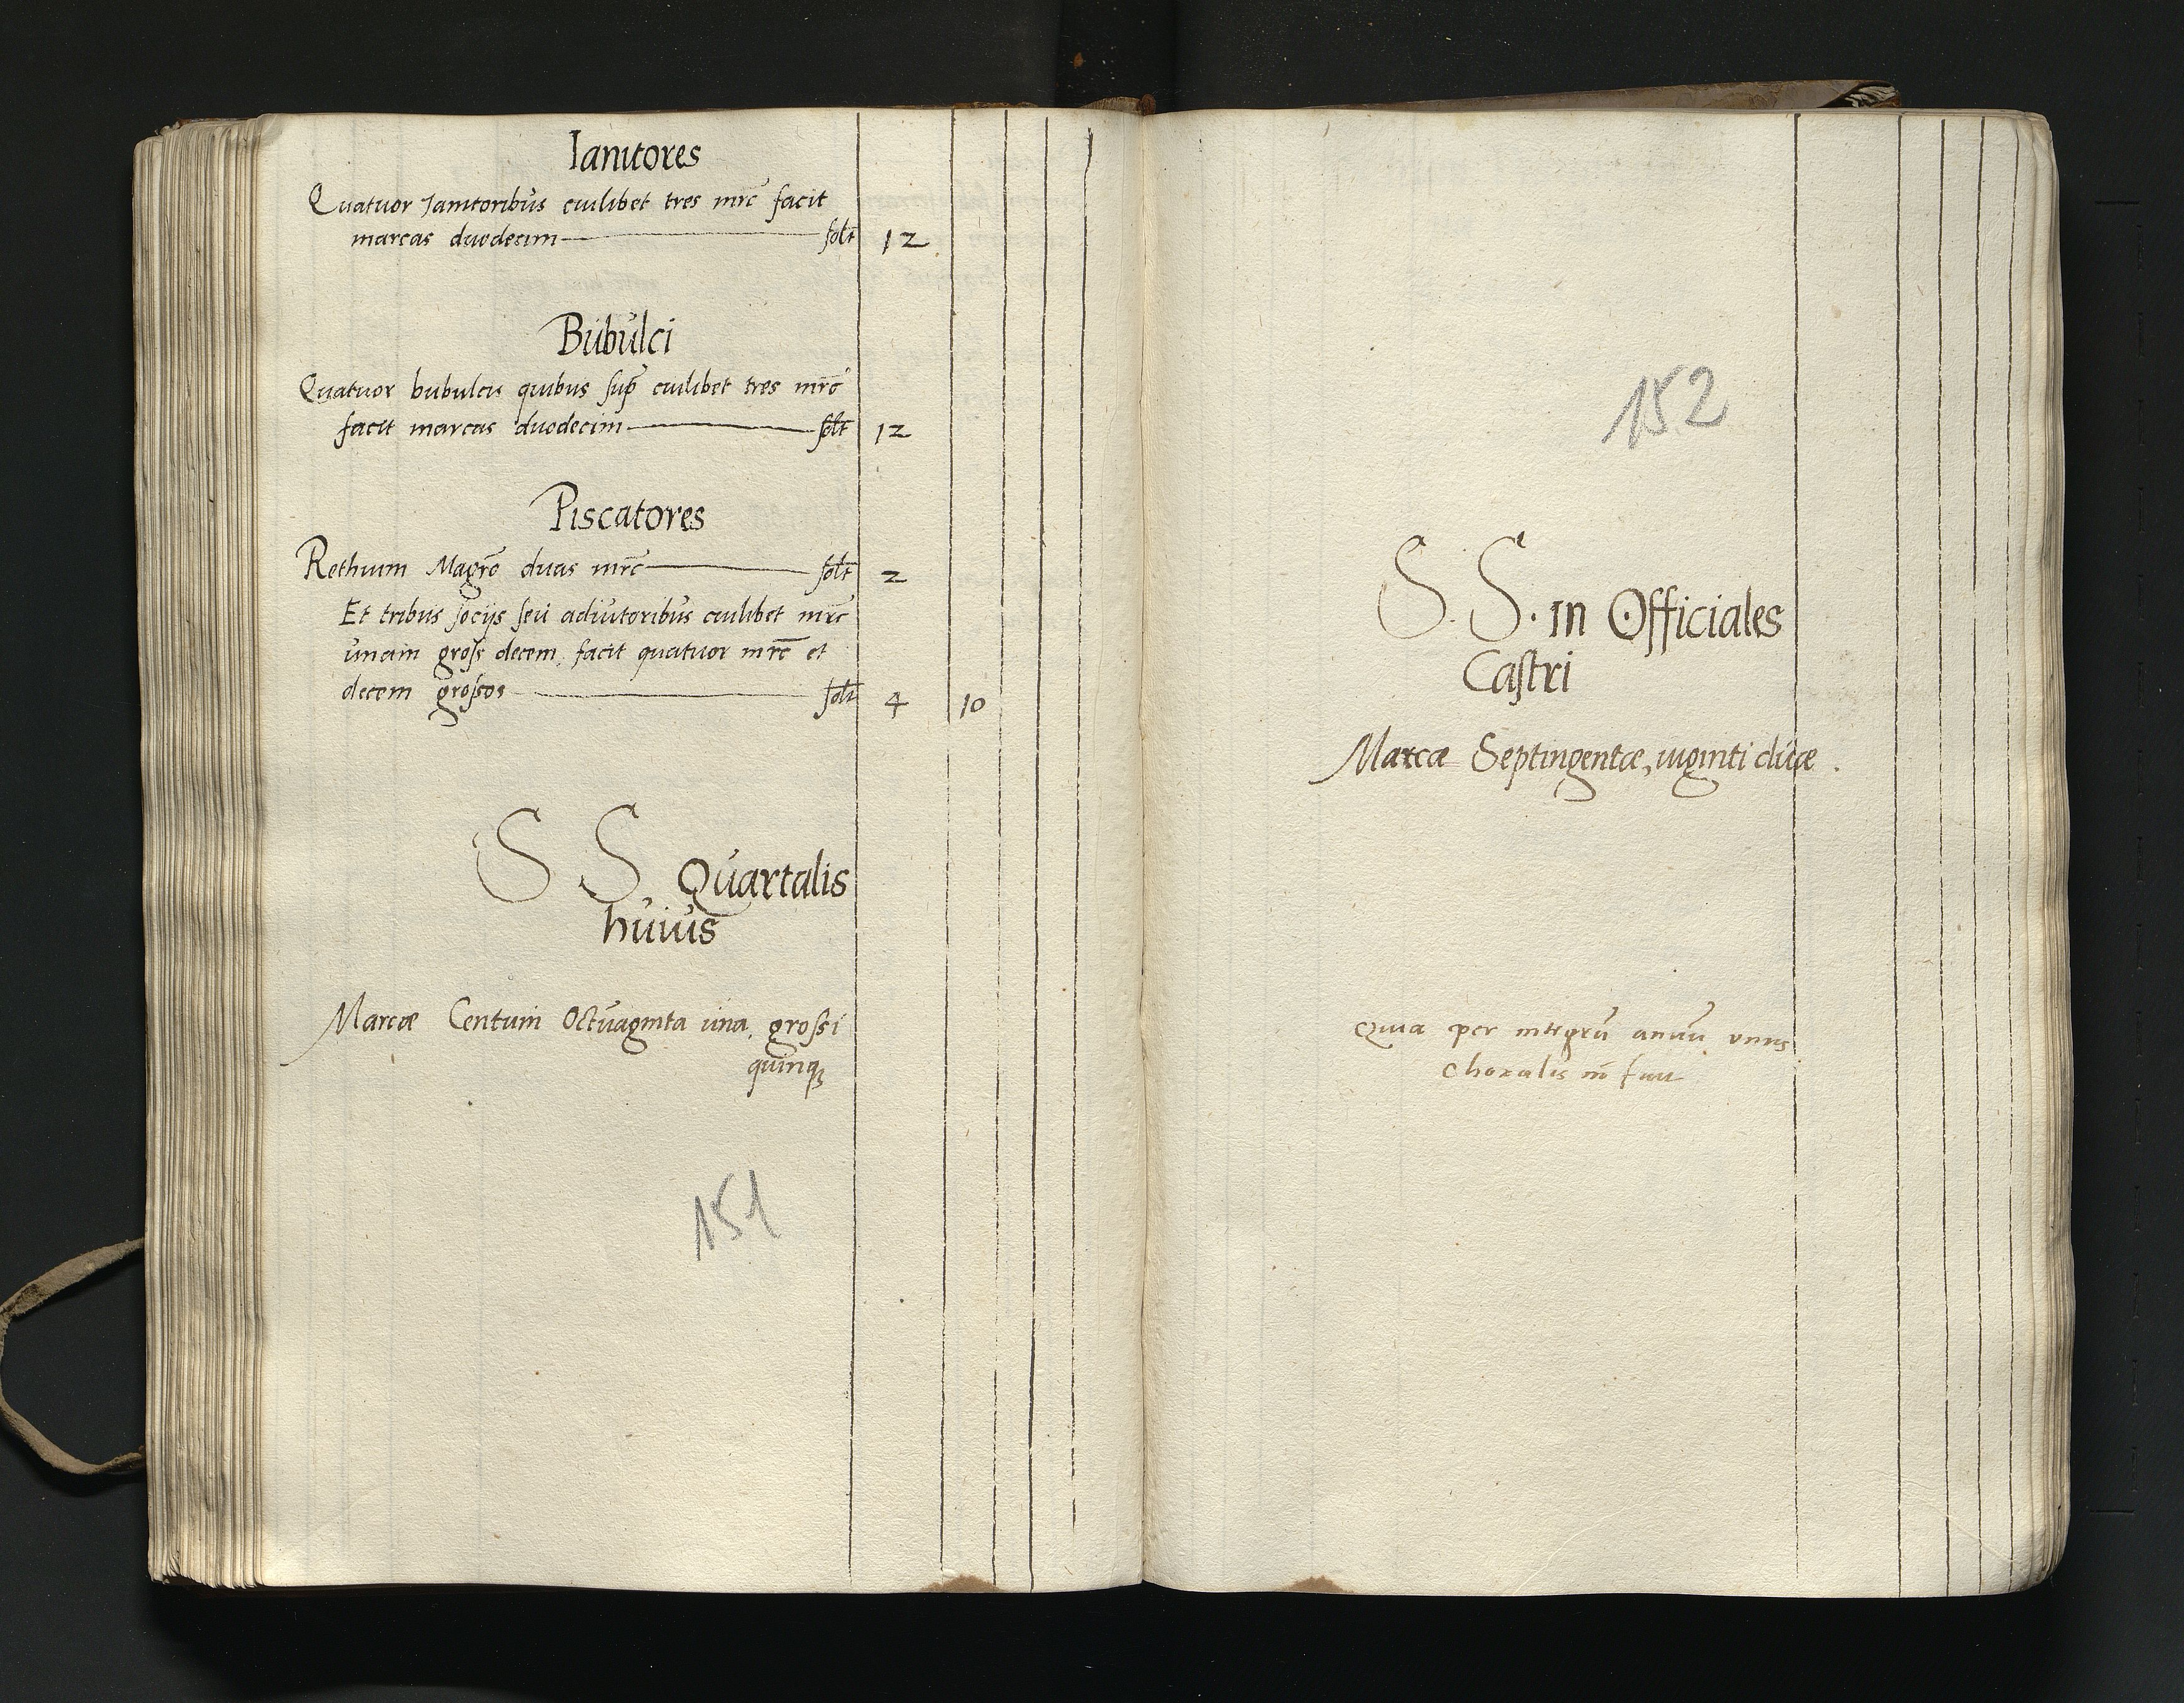 Ianitores
Quatuor Ianitoribus cuilibet tres mrc facit
marcas duodecim — solt 12
Bubulci
Quatuor bubulcis quibus sup cuilibet tres mrc
facit marcas duodecim — solt 12
Piscatores
Rethium Magro duas mrc — solt 2
Et tribus socijs seu adiutoribus cuilibet mrc
unam gross decem, facit quatuor mrc et
decem grossos — solt 4 10
S S Quartalis
huius
Marcæ Centum Octuaginta una, grossi
quinq
151
152
S. S. in Officiales
Castri
Marcæ Septingentæ, viginti duæ.
Quia per integrū annū unus
Choralis nō fuit